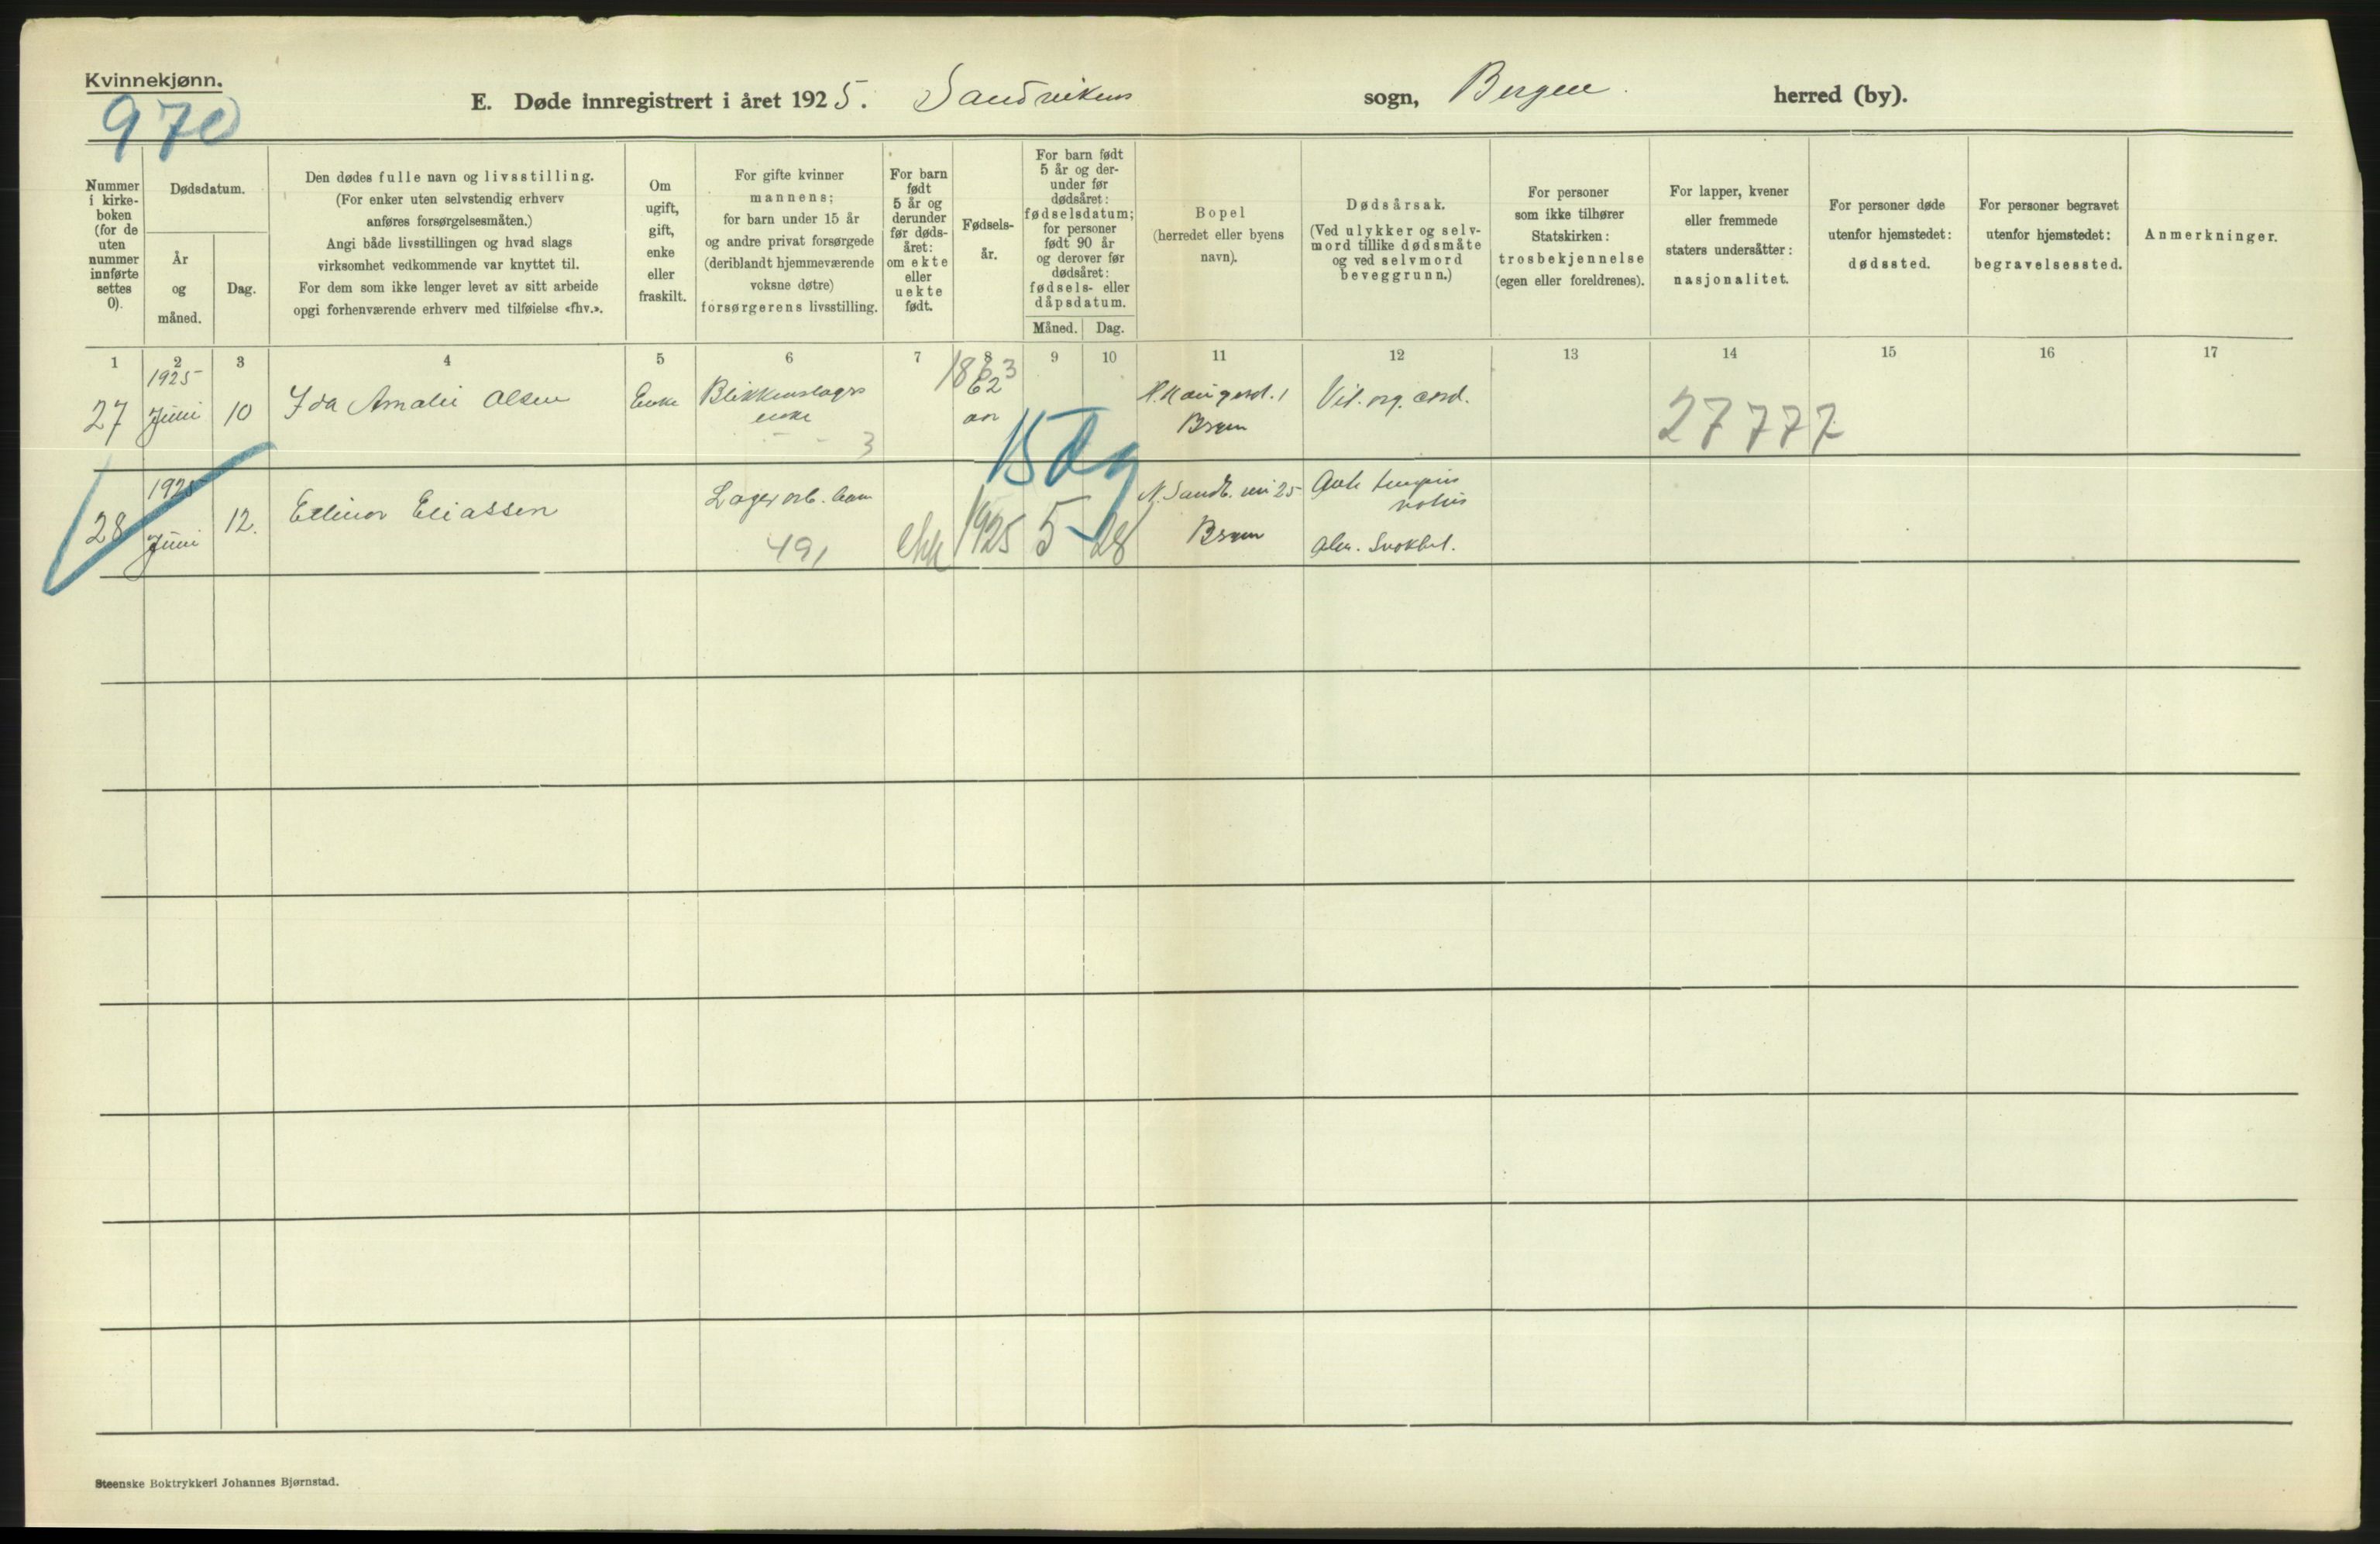 Kvinnekjønn.
970
E. Døde innregistrert i året 1925. Sandvikens sogn, Bergen herred (by).
Nummer
i kirke-
boken
(for de
uten
nummer
innførte
settes
0).
Dødsdatum.
År
og
måned.
Dag.
Den dødes fulle navn og livsstilling.
(For enker uten selvstendig erhverv
anføres forsørgelsesmåten.)
Angi både livsstillingen og hvad slags
virksomhet vedkommende var knyttet til.
For dem som ikke lenger levet av sitt arbeide
opgi forhenværende erhverv med tilføielse «fhv.».
Om
ugift,
gift,
enke
eller
fraskilt.
For gifte kvinner
mannens;
for barn under 15 år
og andre privat forsørgede
(deriblandt hjemmeværende
voksne døtre)
forsørgerens livsstilling.
For barn
født
5 år og
derunder
før døds-
året:
om ekte
eller
uekte
født.
Fødsels-
år.
For barn født
5 år og der-
under før
dødsåret:
fødselsdatum;
for personer
født 90 år
og derover før
dødsåret:
fødsels- eller
dåpsdatum.
Måned. Dag.
Bopel
(herredet eller byens
navn).
Dødsårsak.
(Ved ulykker og selv-
mord tillike dødsmåte
og ved selvmord
beveggrunn.)
For personer
som ikke tilhører
Statskirken:
trosbekjennelse
(egen eller foreldrenes).
For lapper, kvener
eller fremmede
staters undersåtter:
nasjonalitet.
For personer døde
utenfor hjemstedet:
dødssted.
For personer begravet
utenfor hjemstedet:
begravelsessted.
Anmerkninger.
1 2 3 4 5 6 7 8 9 10 11 12 13 14 15 16 17
1925 1863
27 Juni 10 Ida Amalie Olsen Enke Blikkenslagers 62 Vit. org. cord.
enke aar Brgen
3 27777
15 Dg
1925
28 Juni 12. Ellinor Eliassen Lagerarb. barn N. Sandv. vei 25 Ante temporis
Brgen
491 ekte 1925 5 28
Steenske Boktrykkeri Johannes Bjørnstad.